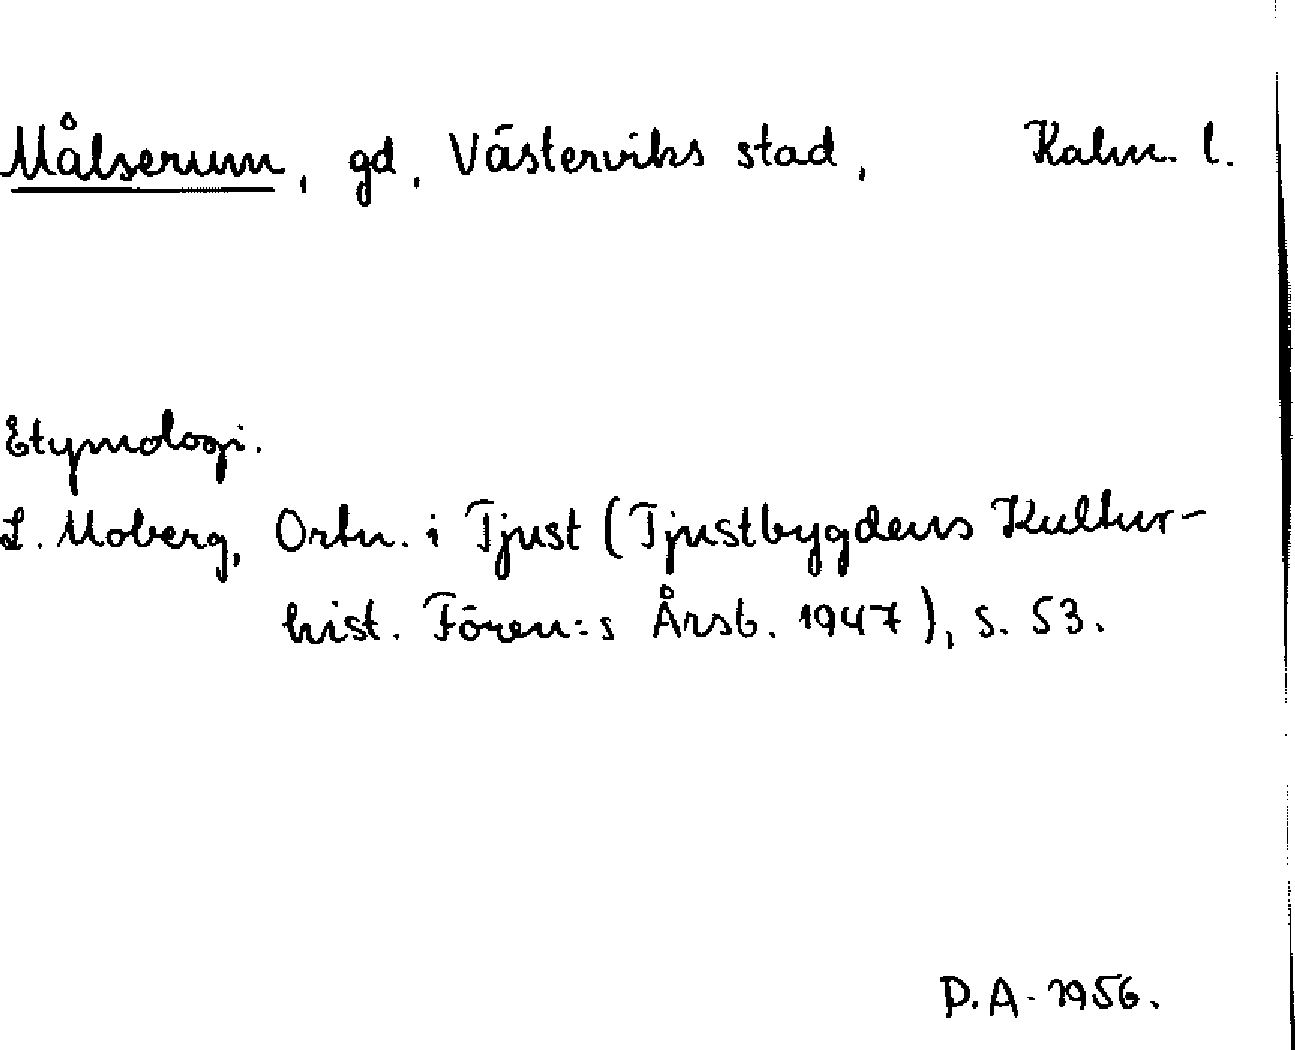 Målserum, gd, Västerviks stad, Kalm. l.
Etymologi.
L. Moberg, Ortn. i Tjust (Tjustbygdens Kultur-
hist. Fören:s Årsb. 1947), s. 53.
D.A. 1956.